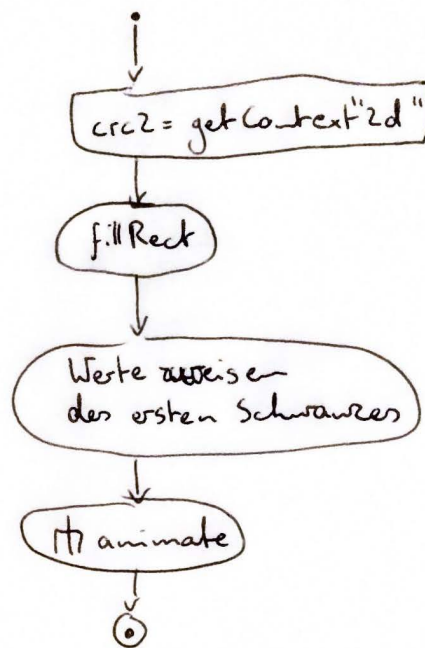 crc2 = getContext"2d"
fillRect
Werte zuweisen
des ersten Schwanzes
animate